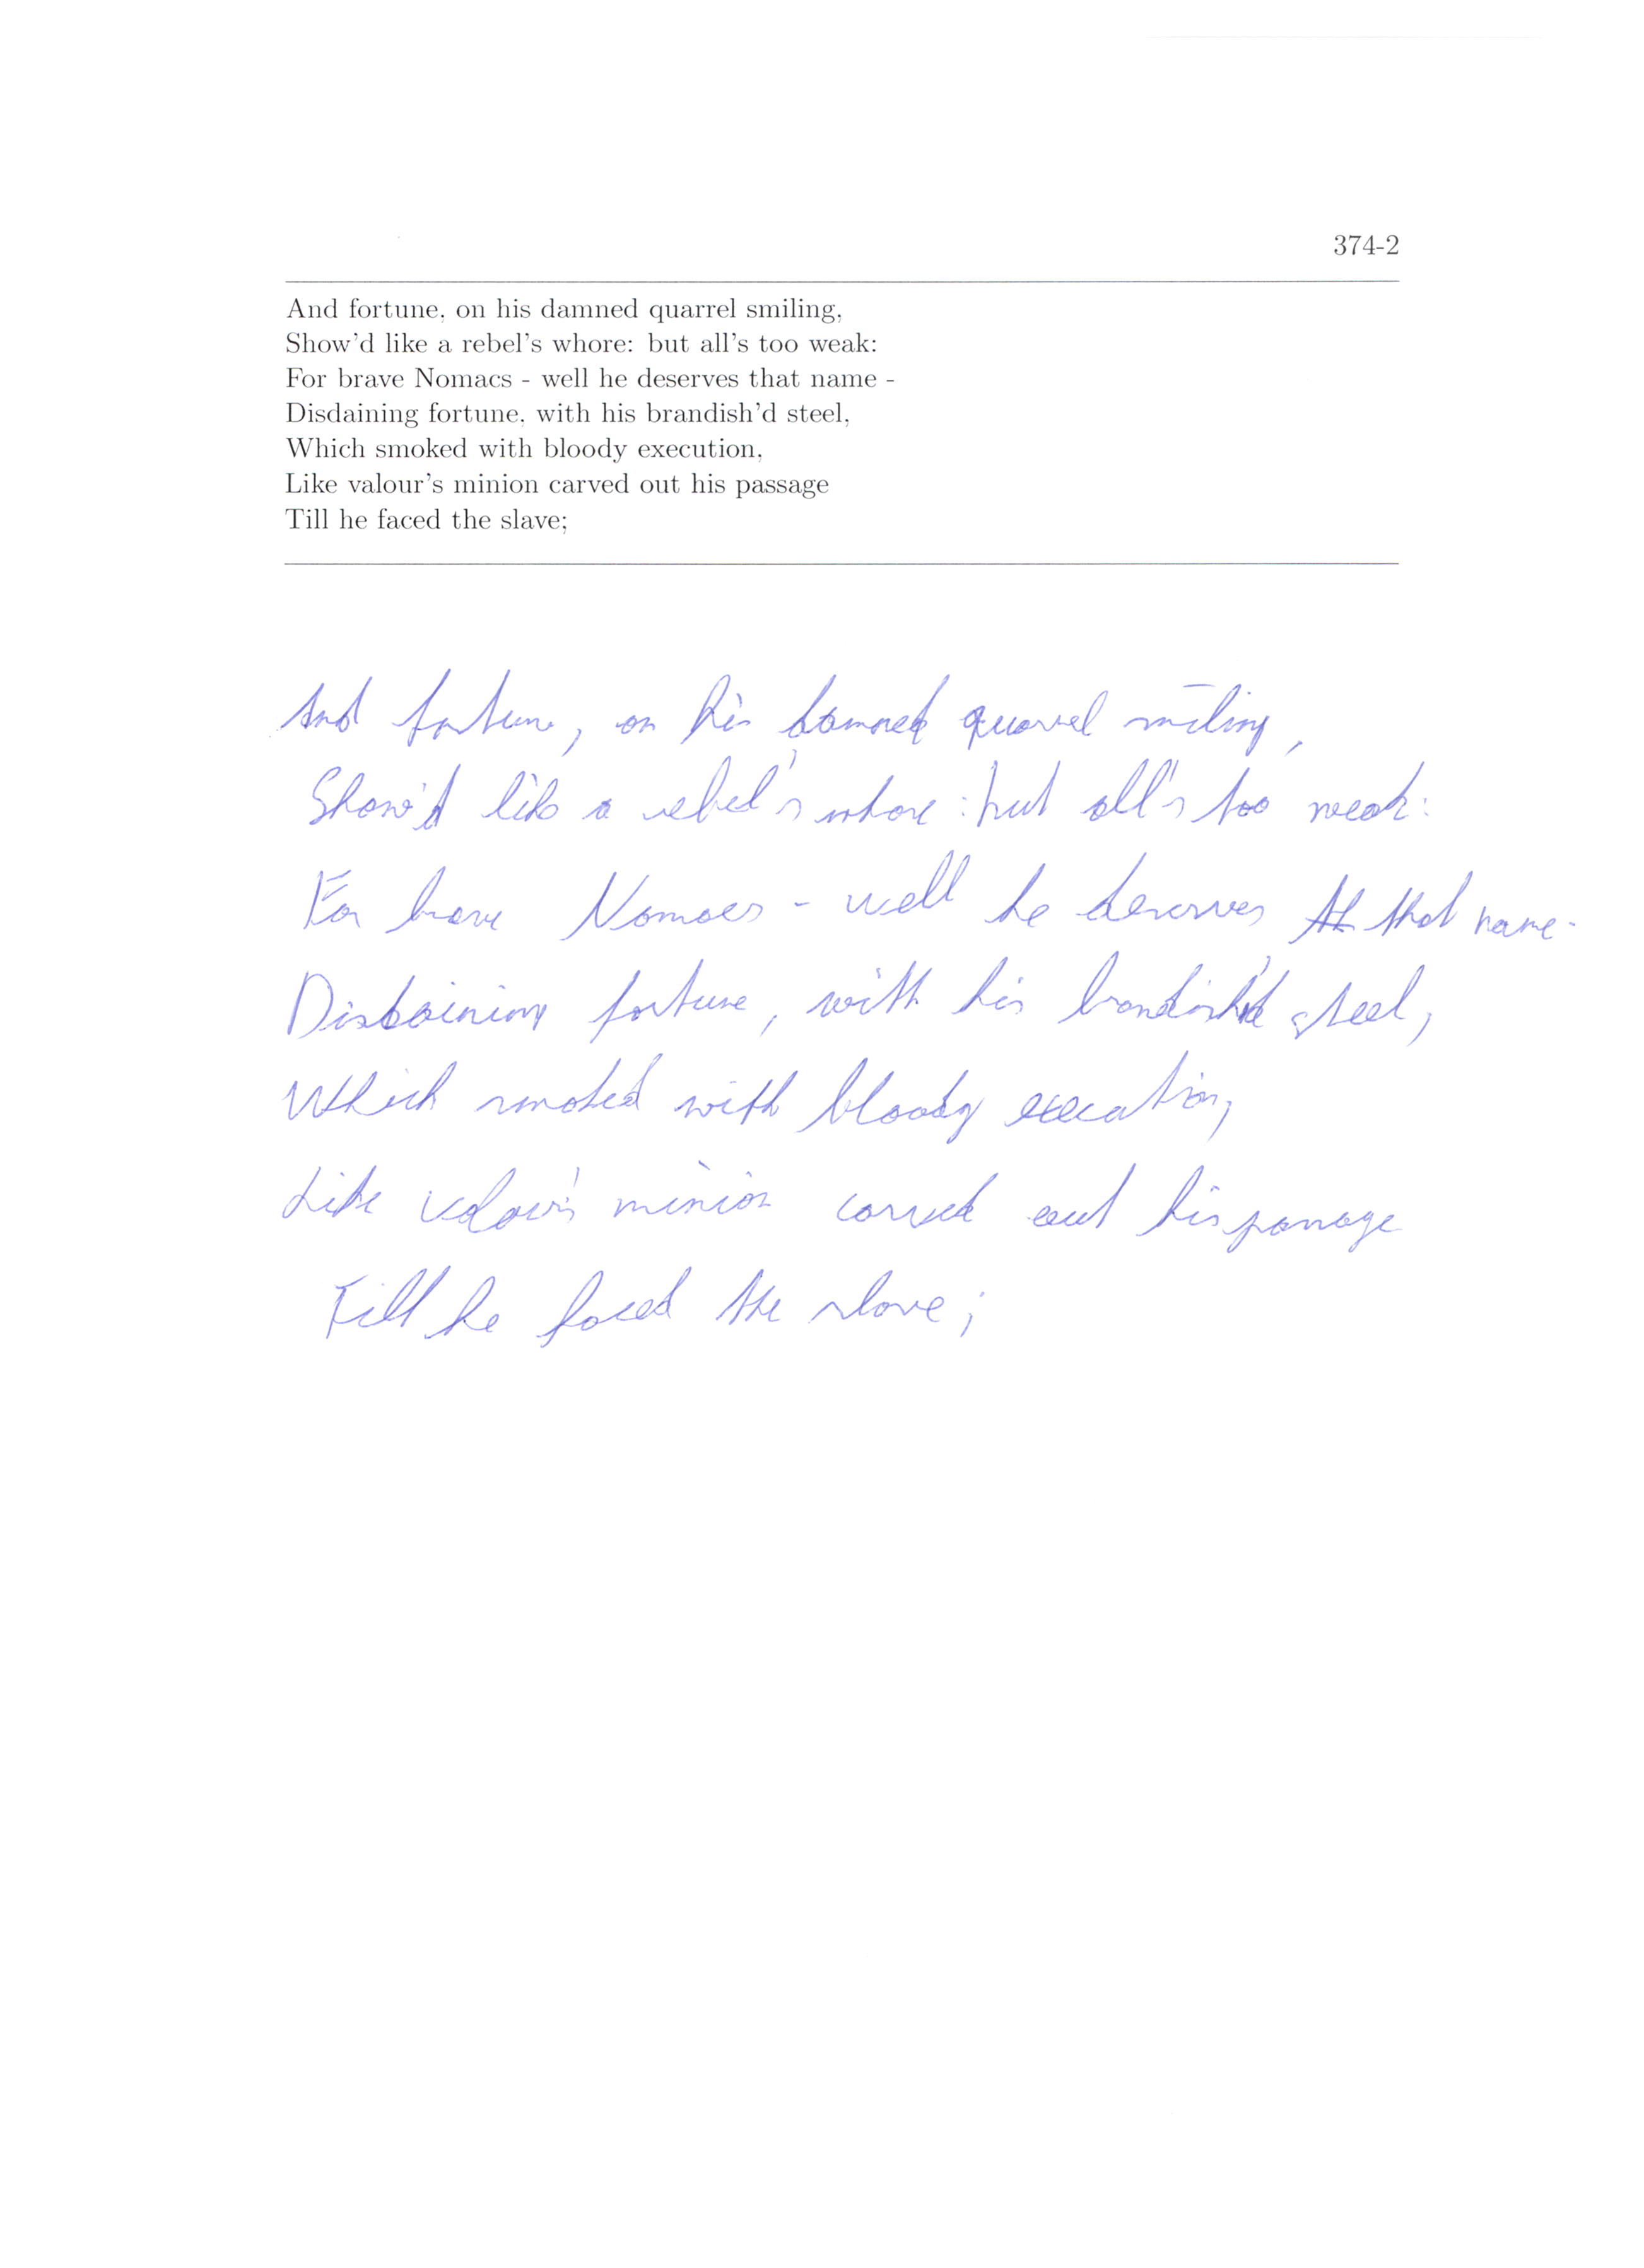 374-2
And fortune, on his damned quarrel smiling,
Show'd like a rebel's whore: but all's too weak:
For brave Nomacs - well he deserves that name -
Disdaining fortune, with his brandish'd steel,
Which smoked with bloody execution,
Like valour's minion carved out his passage
Till he faced the slave;
And fortune, on his damned quarrel smiling,
Show'd like a rebel's whore: but all's too weak:
For brave Nomacs - well he deserves that name -
Disdaining fortune, with his brandish'd steel,
Which smoked with bloody execution,
Like valour's minion carved out his passage
Till he faced the slave;